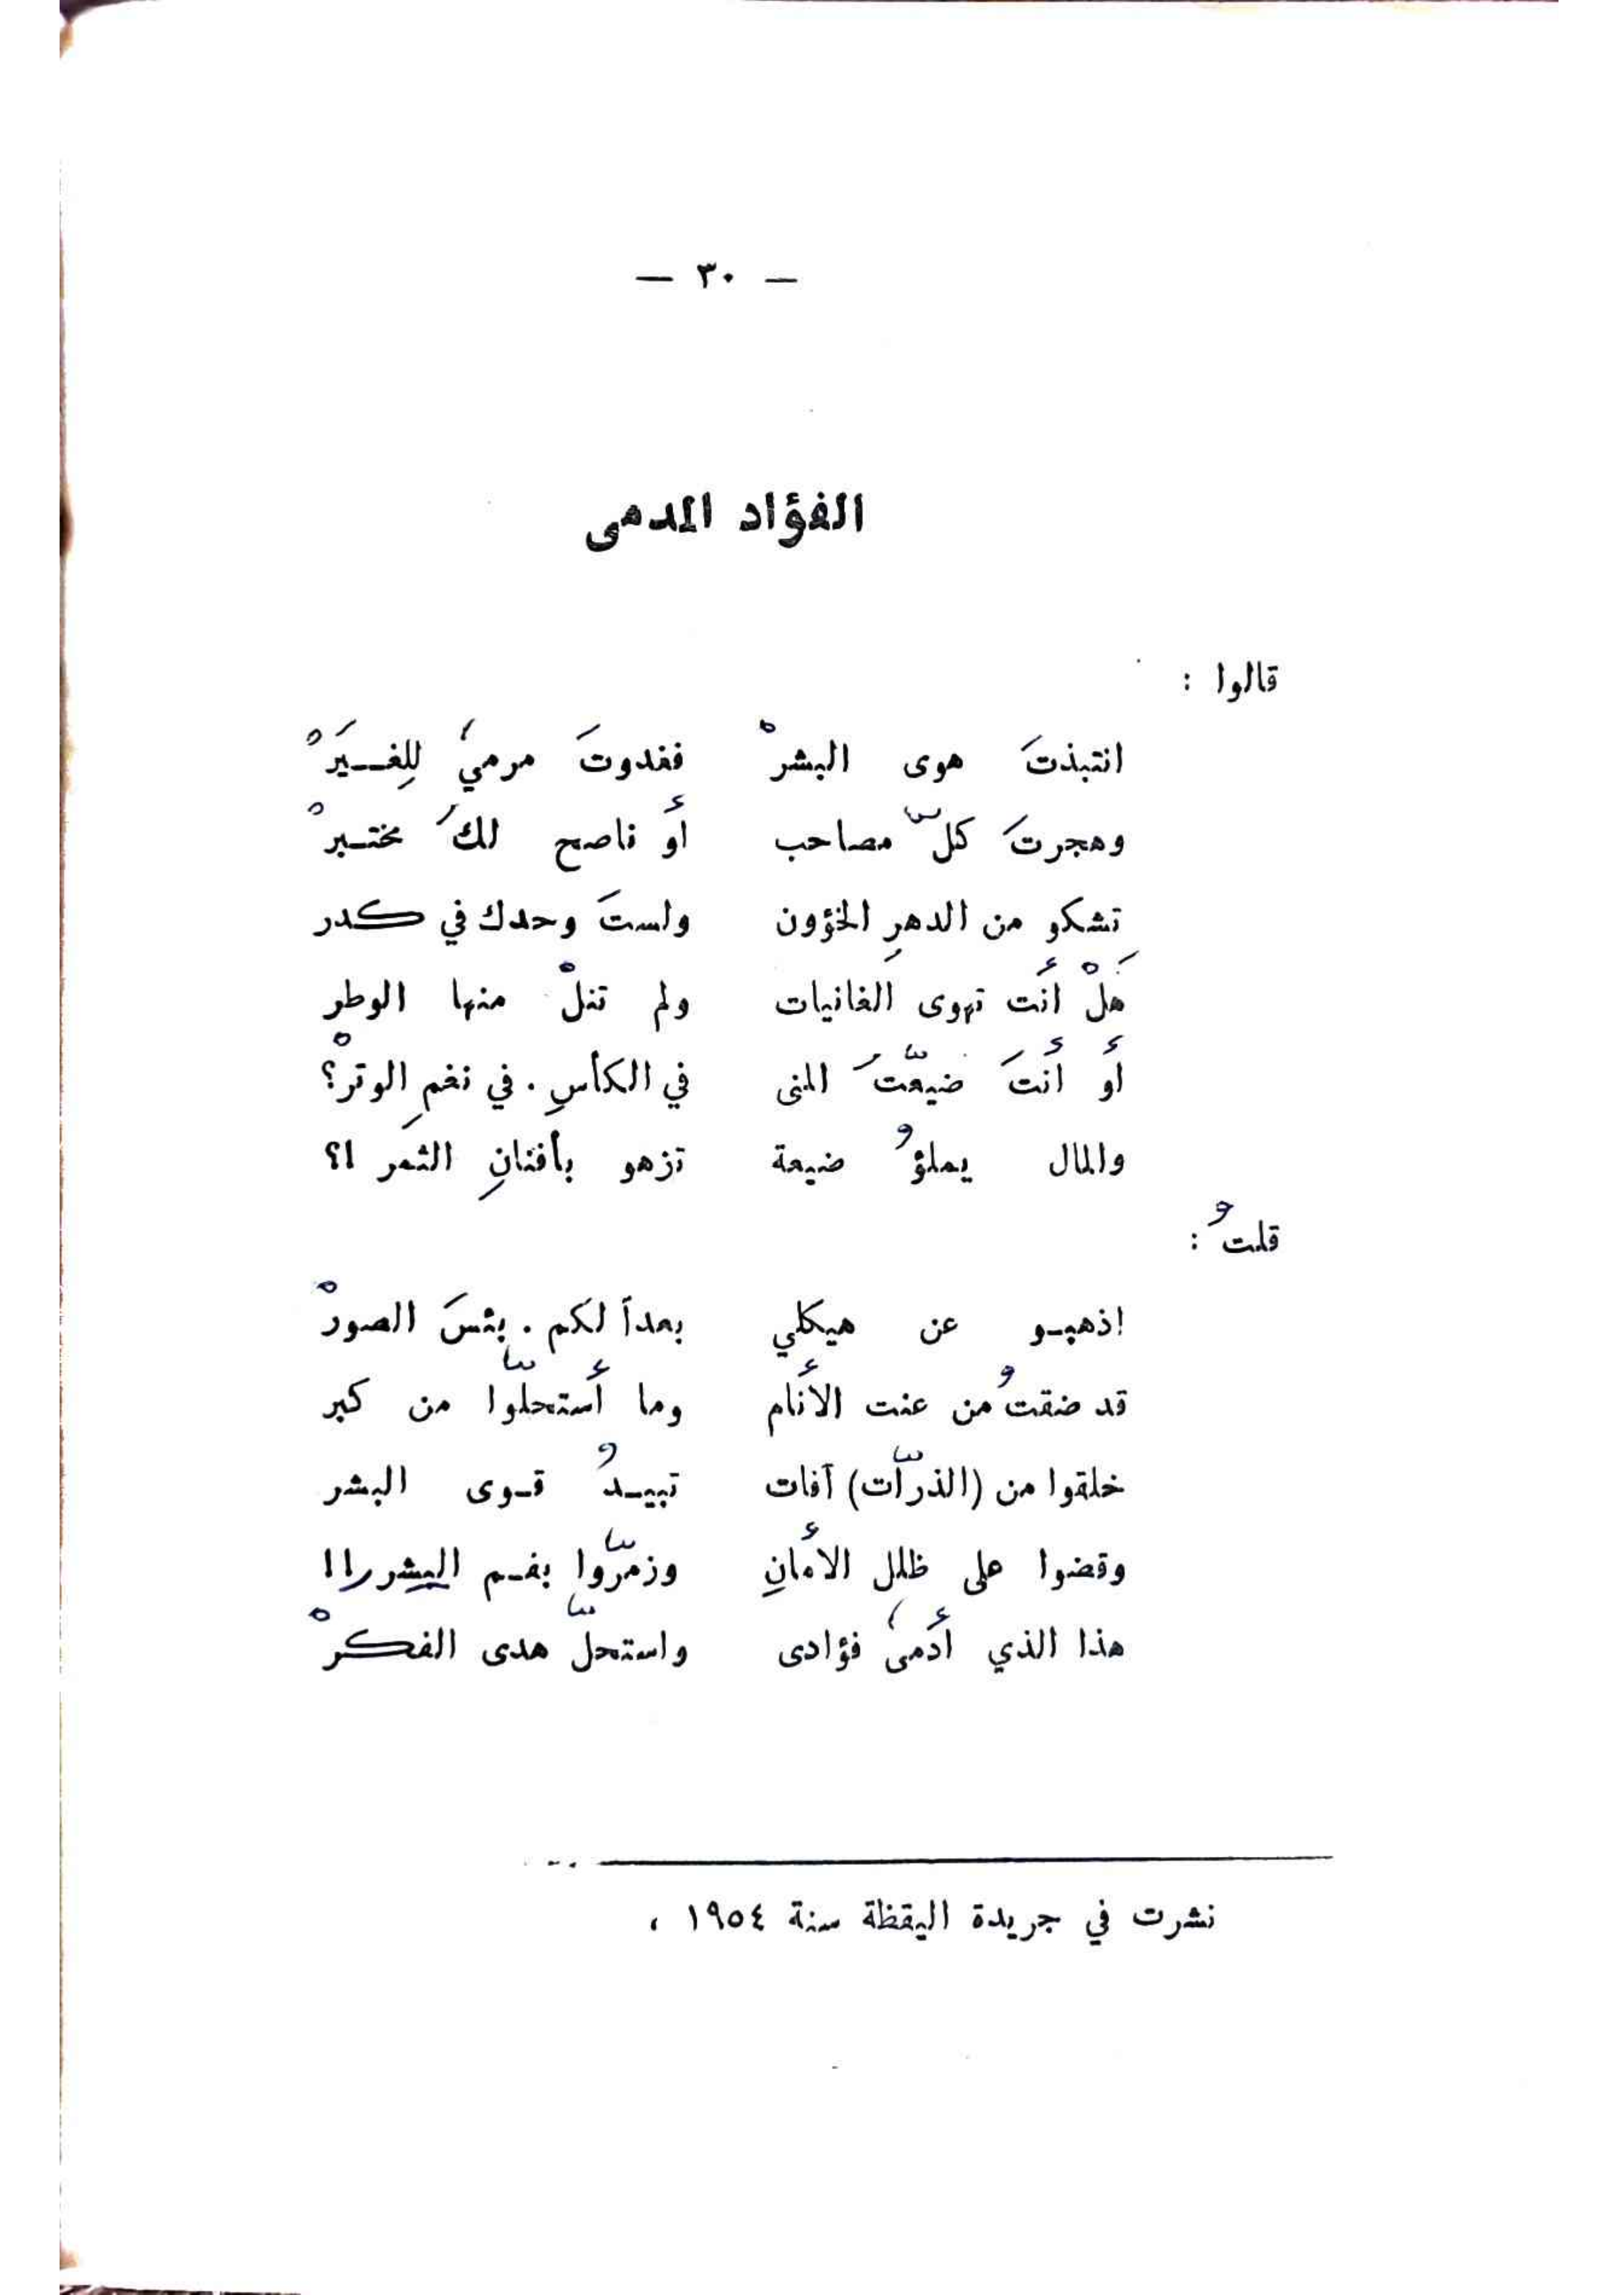 — ٣٠ —
الفؤاد المدمى
قالوا :
انتبذتَ هوى البشرْ فغدوتَ مرميً للِغـيَرْ
وهجرتَ كلّ مصاحب أَو ناصح لكَ مختـبرْ
تشكو من الدهرِ الخؤون ولستَ وحدك في كدر
هَلْ أَنت تهوى الغانيات ولم تنلْ منها الوطر
أَو أَنتَ ضيّعتَ المنى في الكأسِ . في نغمِ الوترْ؟
والمال يملؤُ ضيعة تزهو بأفنانِ الثمر !؟
قلتُ :
إذهبـو عن هيكلي بعداً لكم . بئسَ الصورْ
قد ضقتُ من عنت الأَنام وما أَستحلّوا من كبر
خلقوا من (الذرّات) آفات تبيـدُ قـوى البشر
وقضوا على ظلل الأَمانِ وزمّروا بفـم البشر را!!
هذا الذي أَدمىً فؤادى واستحلّ هدى الفكرْ
نشرت في جريدة اليقظة سنة ١٩٥٤ ،